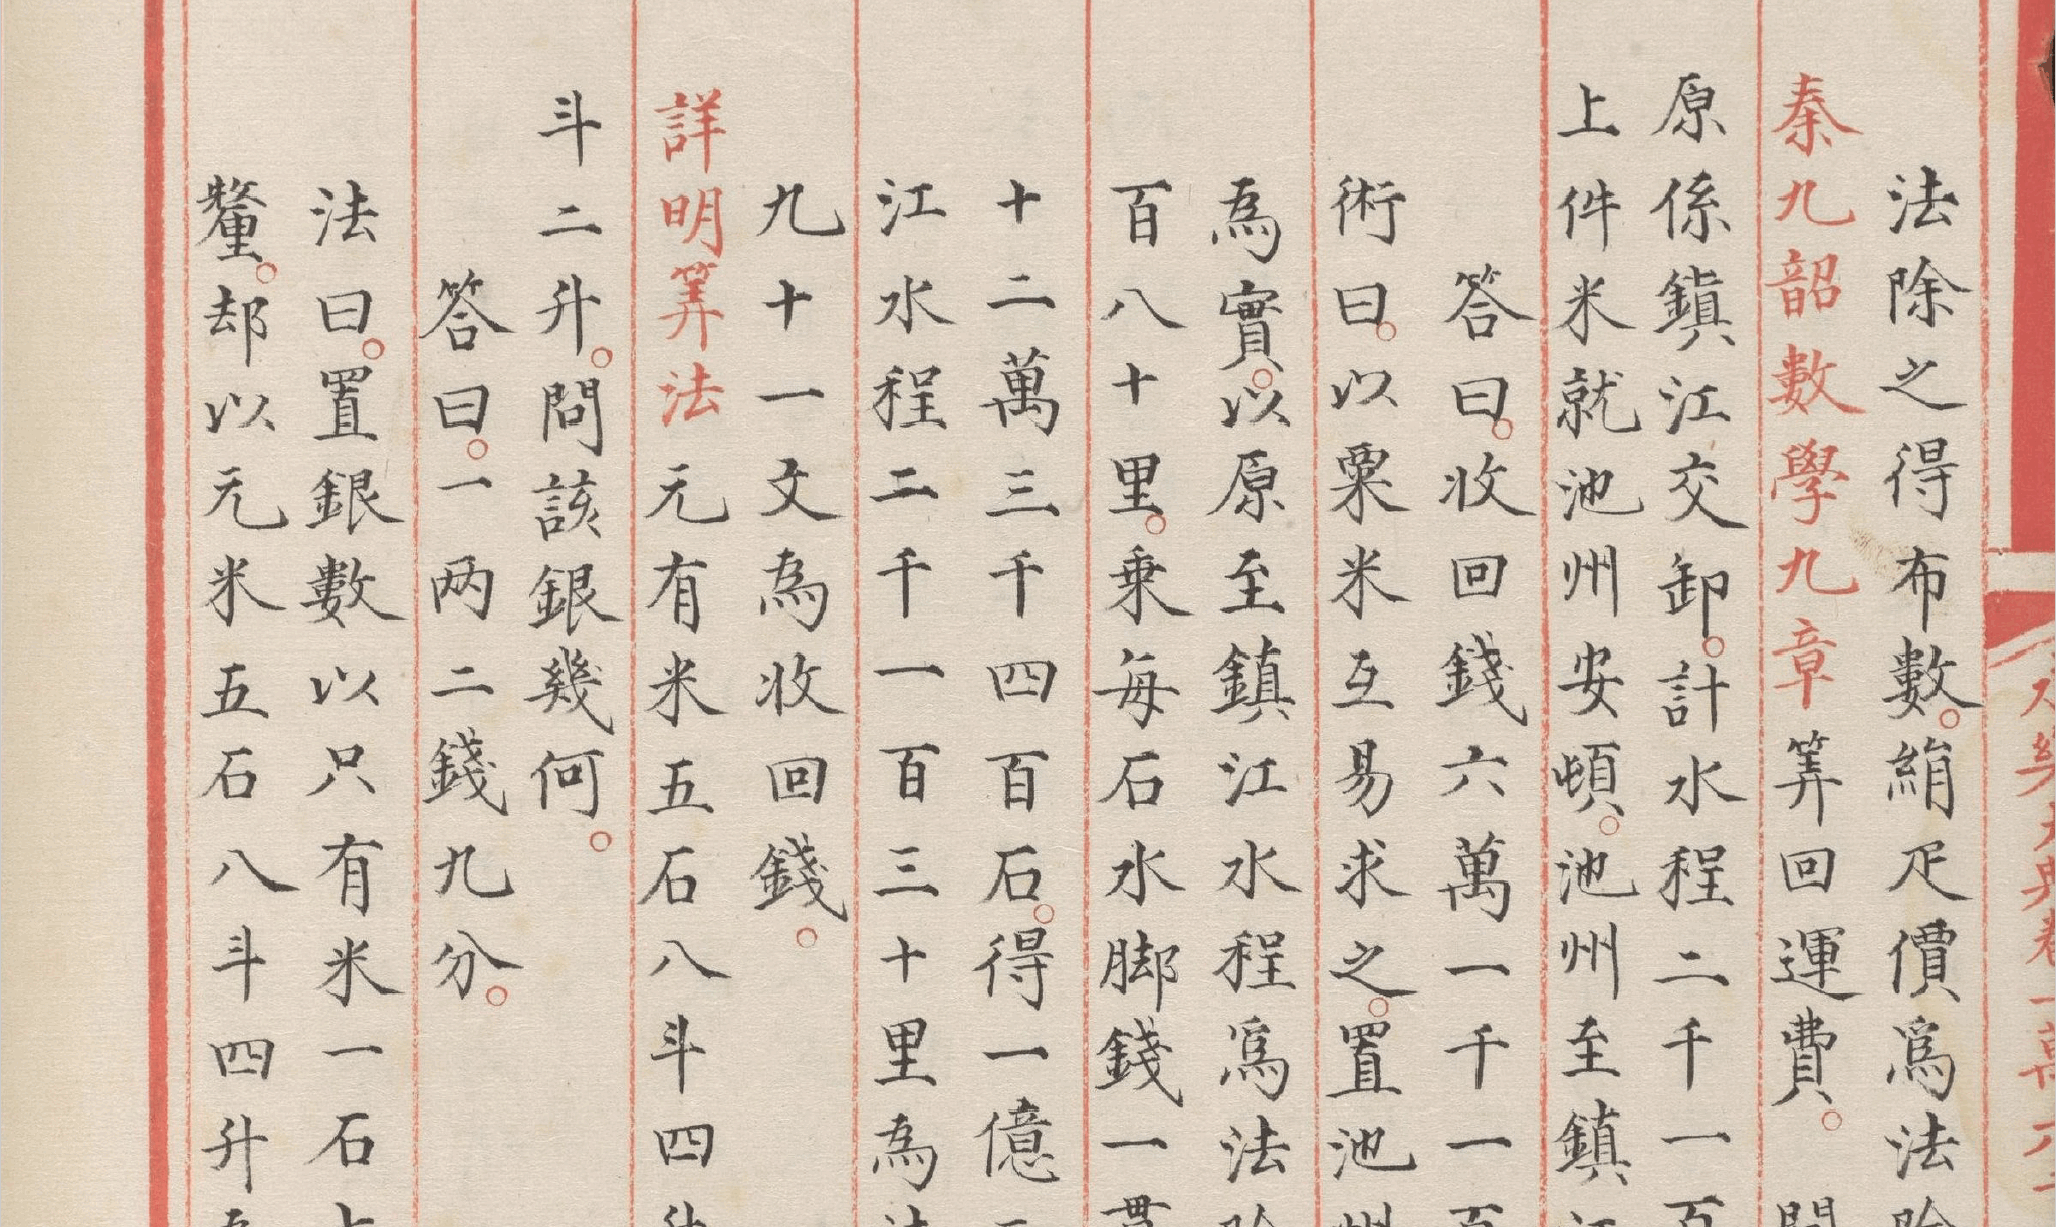 法除之得布數。絹疋價爲法
秦九韶數學九章筭回運費。
原係鎮江交卸。計水程二千一百
上件米就池州安頓。池州至鎮江
答曰。收回錢六萬一千一百
術曰。以粟米互易求之。置池州
為實。以原至鎮江水程爲法除
百八十里。乗每石水脚錢一貫
十二萬三千四百石。得一億
江水程二千一百三十里為法
九十一文為收回錢。
詳明筭法元有米五石八斗四升
斗二升。問該銀幾何。
答曰。一两二錢九分。
法曰。置銀數以只有米一石
釐。却以元米五石八斗四升